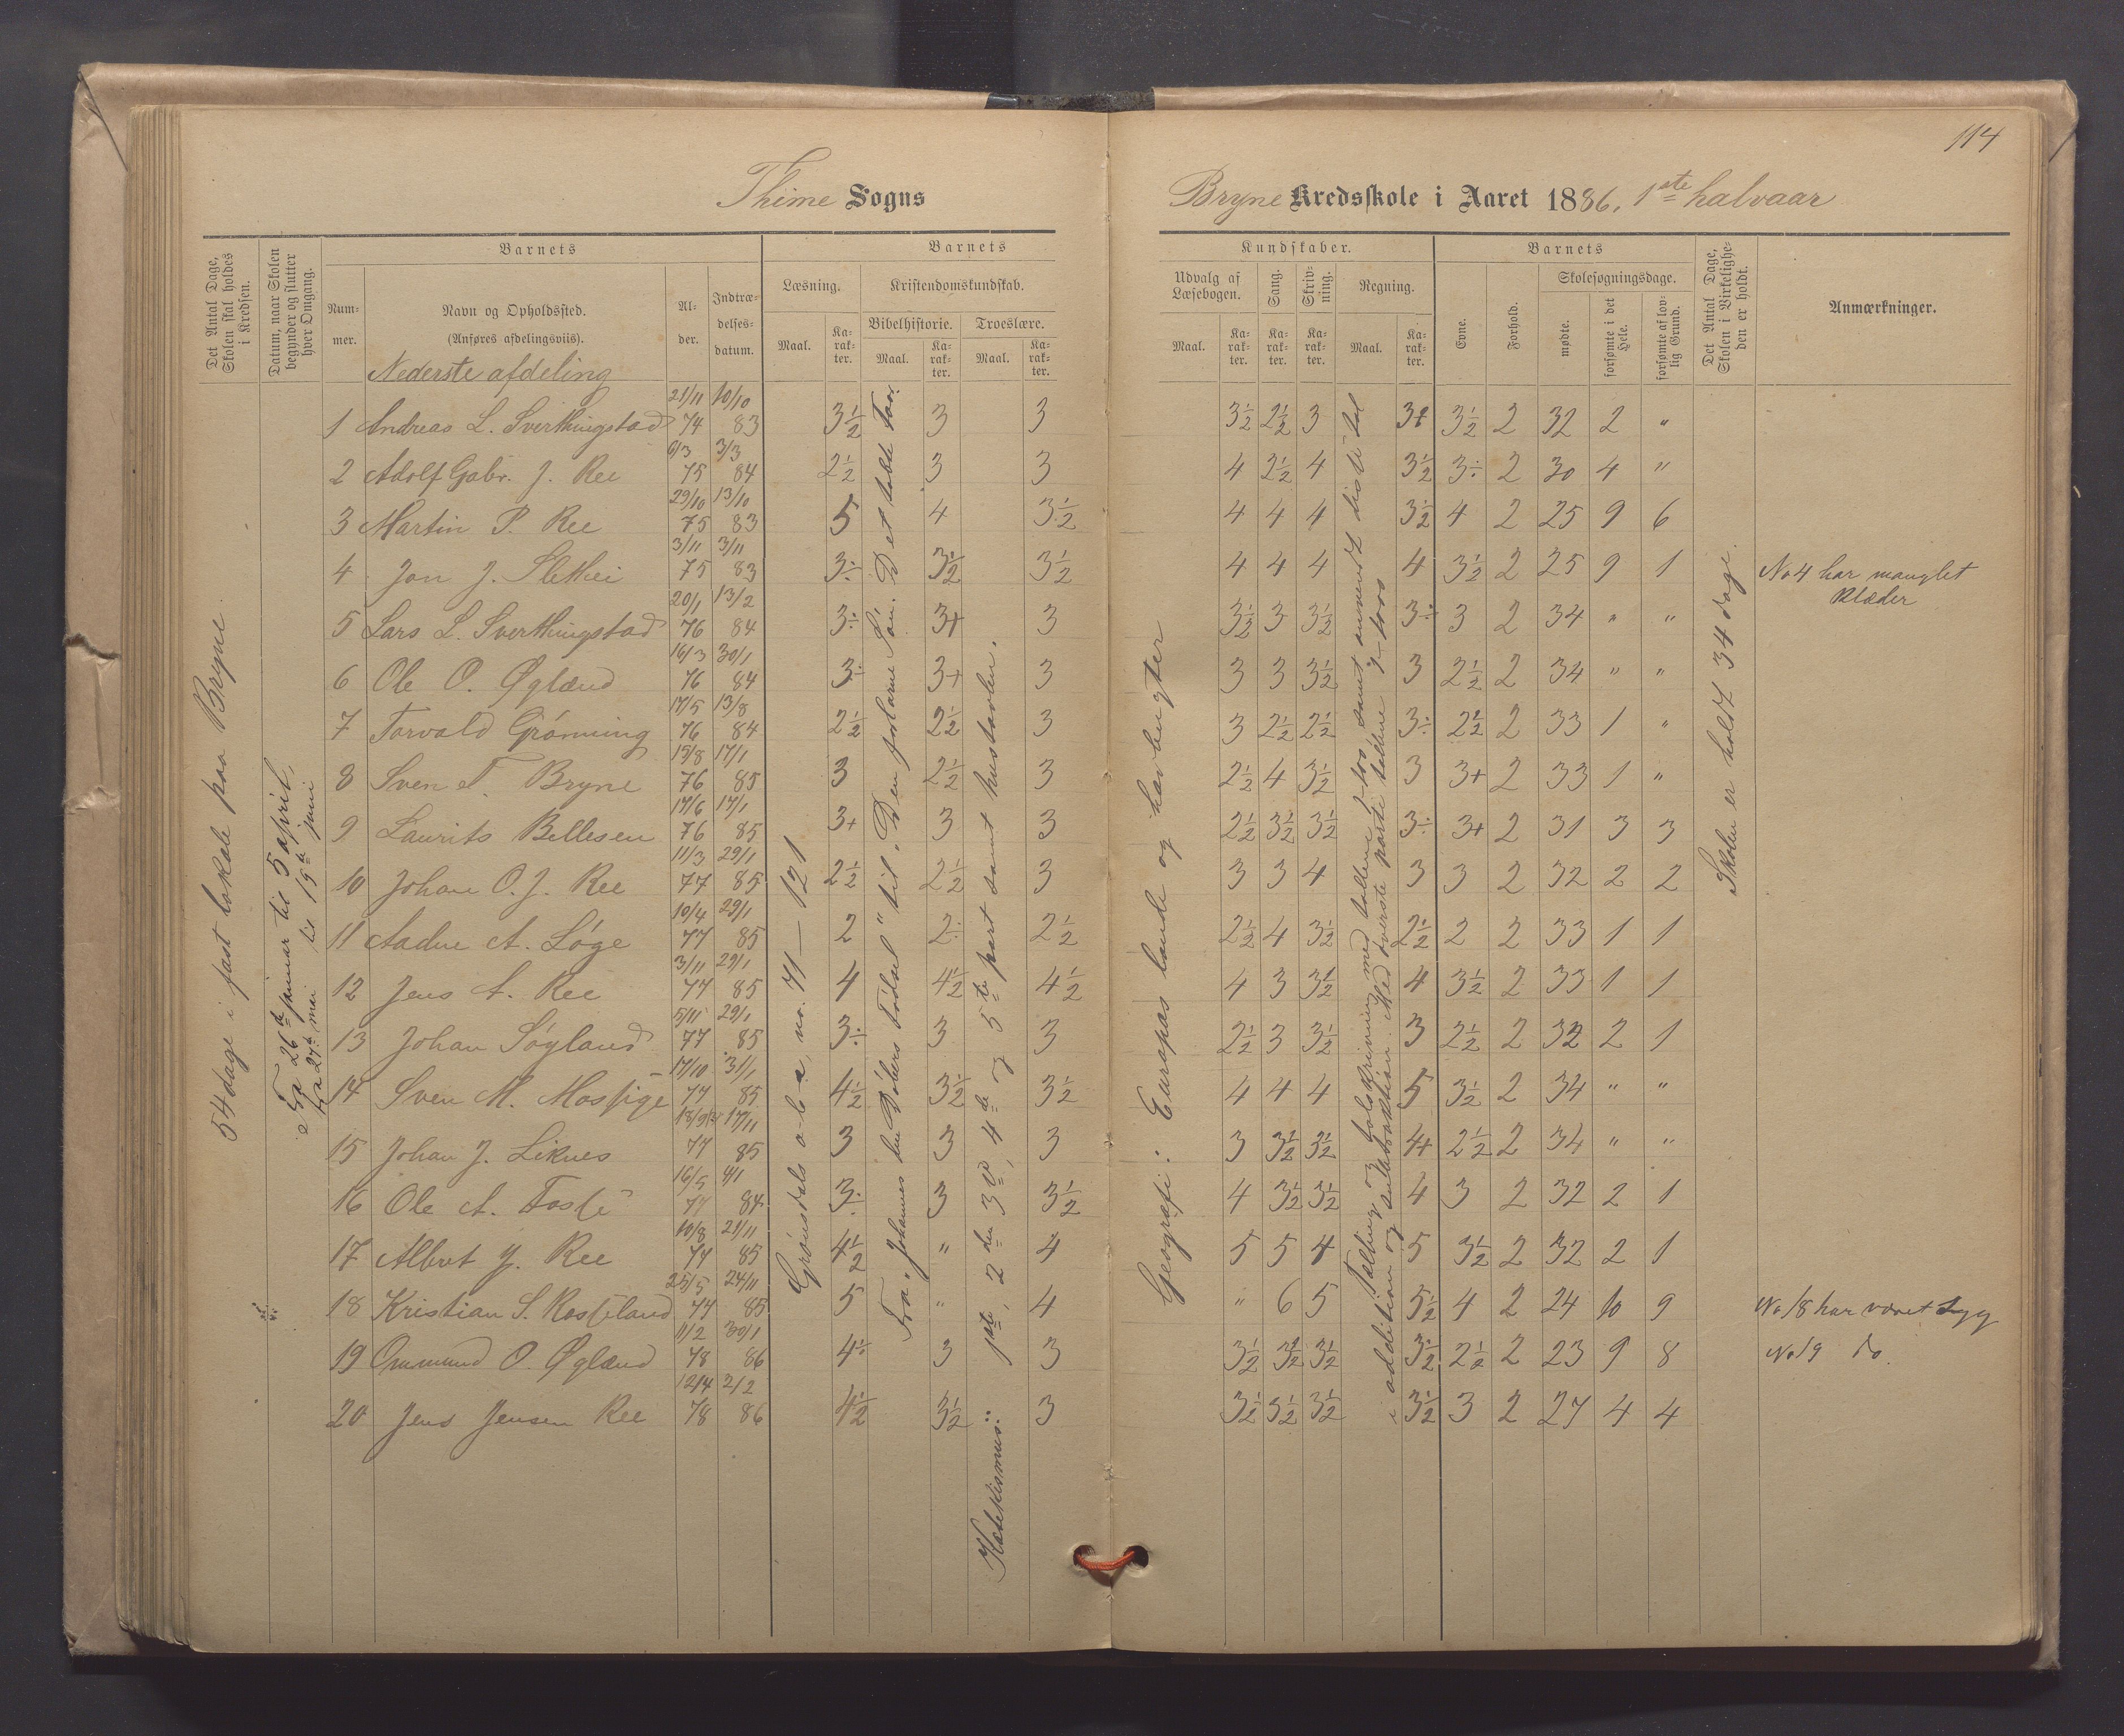 114
Thime Sogns
Bryne Kredsskole i Aaret 1886, 1ste halvaar
Det Antal Dage, Skolen skal holdes i Kredsen.
Datum, naar Skolen begynder og slutter hver Omgang.
Barnets
Nummer.
Navn og Opholdssted.
(Anføres afdelingsviis).
Alder.
Indtrædelsesdatum.
Barnets
Læsning.
Maal.
Karakter.
Kristendomskundskab.
Bibelhistorie.
Maal.
Karakter.
Troeslære.
Maal.
Karakter.
Kundskaber.
Udvalg af Læsebogen.
Maal.
Karakter.
Sang.
Karakter.
Skrivning.
Karakter.
Regning.
Maal.
Karakter.
Barnets
Evne.
Forhold.
Skolesøgningsdage.
mødte.
forsømte i det Hele.
forsømte af lovlig Grund.
Det Antal Dage, Skolen i Virkeligheden er holdt.
Anmærkninger.
Nederste afdeling
1 Andreas L. Sverthingstad 21/11 74 10/10 83 3½ 3 3 3½ 2½ 3 3+ 3½ 2 32 2 "
2 Adolf Gabr. J. Ree 6/3 75 3/3 84 2½ 3 3 4 2½ 4 3½ 3÷ 2 30 4 "
3 Martin P. Ree 29/10 75 13/10 83 5 4 3½ 4 4 4 3½ 4 2 25 9 6
4 Jon J. Slethei 3/11 75 3/11 83 3÷ 3½ 3½ 4 4 4 4 3½ 2 25 9 1 No 4 har manglet
klæder
5 Lars L. Sverthingstad 20/1 76 13/2 84 3÷ 3+ 3 3½ 3 3½ 3÷ 3 2 34 " "
6 Ole O. Øglænd 16/3 76 30/1 84 3÷ 3+ 3 3 3 3½ 3 2½ 2 34 " "
7 Torvald Grønning 17/5 76 13/8 84 2½ 2½ 3 3 2½ 2½ 3÷ 2½ 2 33 1 "
8 Sven T. Bryne 15/8 76 17/1 85 3 2½ 3 2½ 4 3½ 3 3+ 2 33 1 "
9 Laurits Bellesen 17/6 76 17/1 85 3+ 3 3 2½ 3½ 3½ 3÷ 3+ 2 31 3 3
10 Johan O. J. Ree 11/3 77 29/1 85 2½ 2½ 3 3 3 4 3 3 2 32 2 2
11 Aadne A. Løge 10/4 77 29/1 85 2 2÷ 2½ 2½ 4 3½ 2½ 2 2 33 1 1
12 Jens A. Ree 3/11 77 29/1 85 4 4½ 4½ 4 3 3½ 4 3½ 2 33 1 1
13 Johan Søyland 5/11 77 29/1 85 3÷ 3 3 2½ 3 3½ 3 2½ 2 32 2 1
14 Sven M. Mossige 17/10 77 31/1 85 4½ 3½ 3½ 4 4 4 5 3½ 2 34 " "
15 Johan J. Liknes 77 17/11 85 3 3 3 3 3½ 3½ 4+ 2½ 2 34 " "
16 Ole A. Fosse 16/5 77 4/1 84 3÷ 3 3½ 4 3½ 3½ 4 3 2 32 2 1
17 Albert J. Ree 10/8 77 21/11 85 4½ " 4 5 5 4 5 3½ 2 32 2 1
18 Kristian S. Rosseland 25/5 77 24/11 85 5 " 4 " 6 5 5½ 4 2 24 10 9 No 18 har været syg
19 Ommund O. Øglænd 11/2 78 30/1 86 4÷ 3 3 3½ 3½ 3½ 3½ 2½ 2 23 9 8 No 19 do.
20 Jens Jensen Ree 12/4 78 2/2 86 4½ 3½ 3 3½ 3½ 3½ 3½ 3 2 27 4 4
54 dage i fast lokale paa Bryne.
Fra 26de januar til 5 april,
fra 27de mai til 15de juni
Grønsdals a-b-c, no. 71 – 121
Fra "Johannes den Døbers Fødsel" til "Den forlorne Søn. Det tabte Faar.
Katekismus: 1ste, 2den, 3die, 4de og 5te part samt hustavlen.
Geografi: Europas lande og havbugter
Tælling og talskrivning med tallene 1-100, samt anvendt disse tal
i addition og subtraktion. Med øverste parti tallene 1-1000
Skolen er holdt 34 dage.